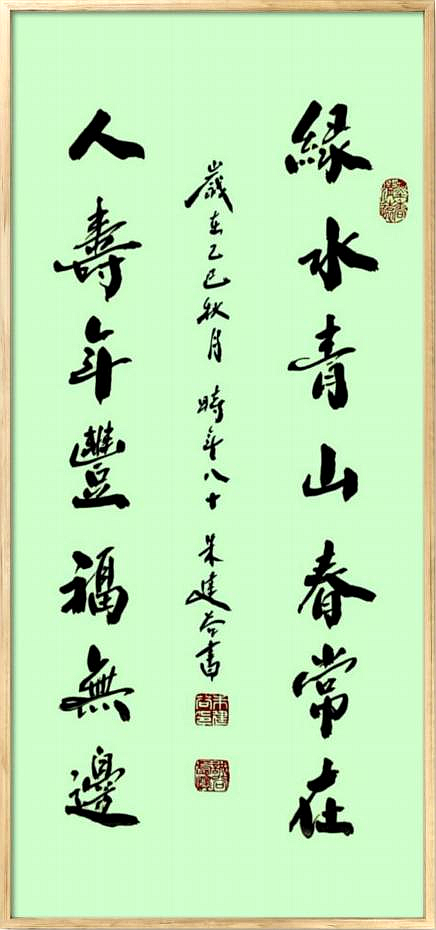 綠水青山春常在
歲在乙巳秋月 時年八十 朱建書
人壽年豐福無邊